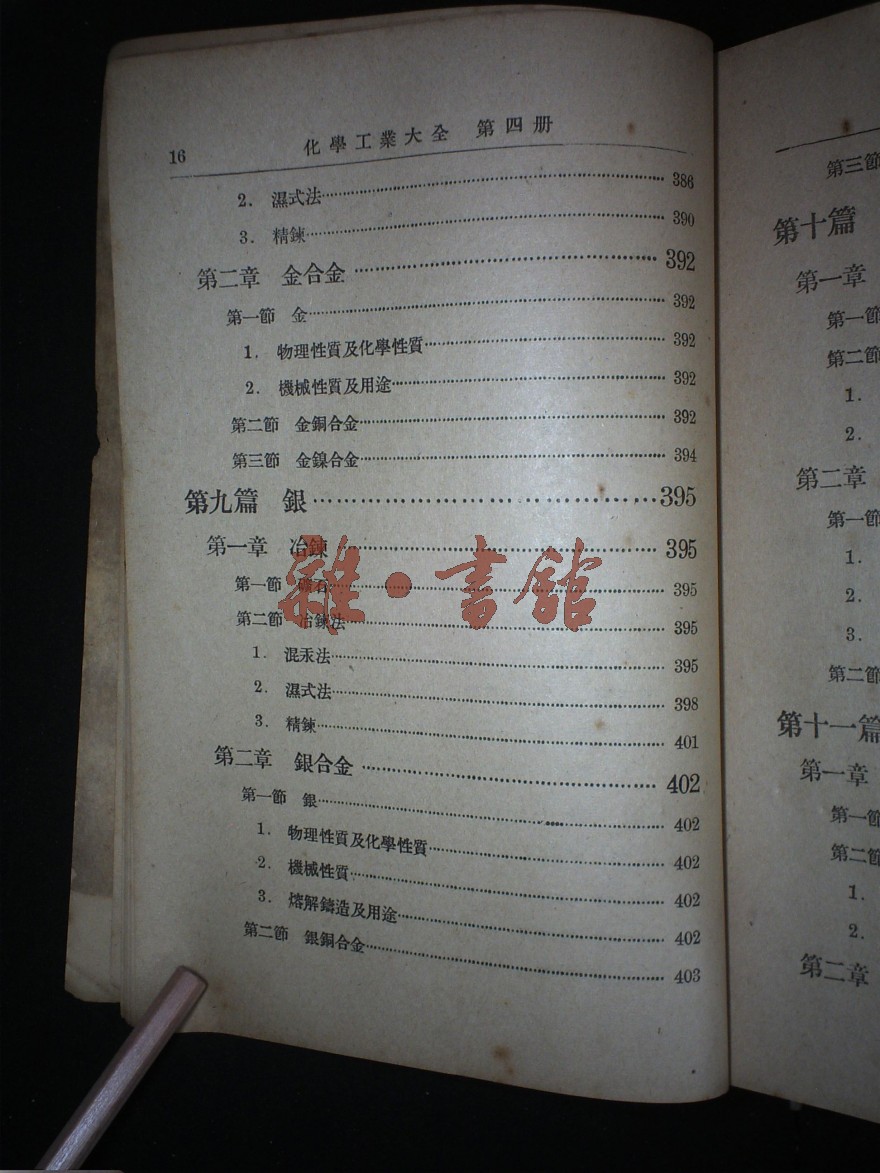 16 化學工業大全 第四册
2. 濕式法 386
3. 精鍊 390
第二章 金合金 392
第一節 金 392
1. 物理性質及化學性質 392
2. 機械性質及用途 392
第二節 金銅合金 392
第三節 金鎳合金 394
第九篇 銀 395
第一章 冶鍊 395
第一節 礦石 395
第二節 冶鍊法 395
1. 混汞法 395
2. 濕式法 398
3. 精鍊 401
第二章 銀合金 402
第一節 銀 402
1. 物理性質及化學性質 402
2. 機械性質 402
3. 熔解鑄造及用途 402
第二節 銀銅合金 403
雜·書館
第三節
第十篇
第一章
第一節
第二節
1.
2.
第二章
第一節
1.
2.
3.
第二節
第十一篇
第一章
第一節
第二節
1.
2.
第二章